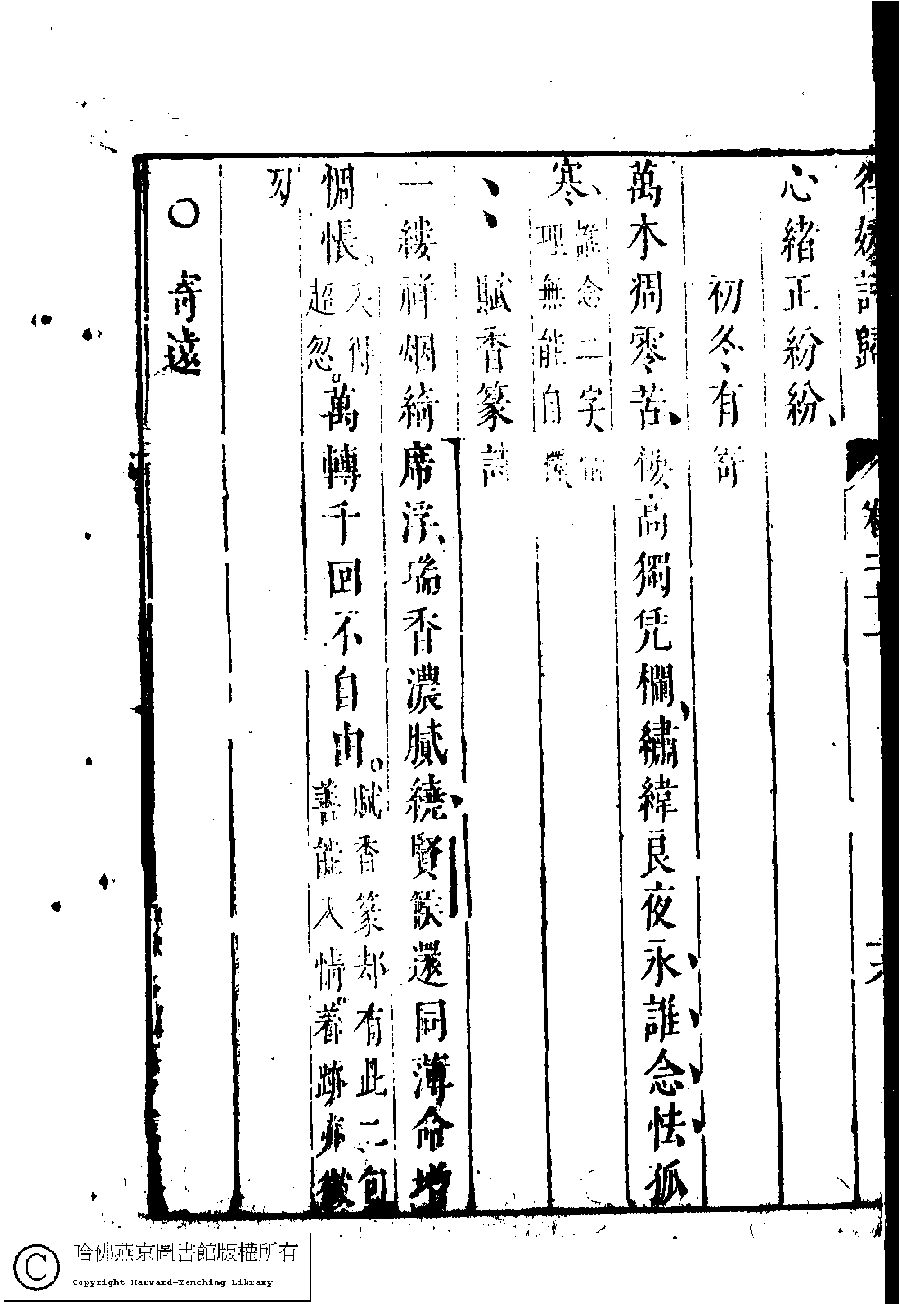 名媛詩歸 卷二十 六
心緒正紛紛
初冬有寄
萬木凋零苦樓高獨凭欄繡幃良夜永誰念怯孤
寒誰念二字
理無能自
賦香篆詩
一縷祥烟綺席浮瑞香濃膩繞賢篌還同薄命增
惆悵入得
超忽萬轉千回不自由賦香篆却有此二句
善能入情着跡
幻
○ 寄遠
哈佛燕京圖書館版權所有
Copyright Harvard-Yenching Library